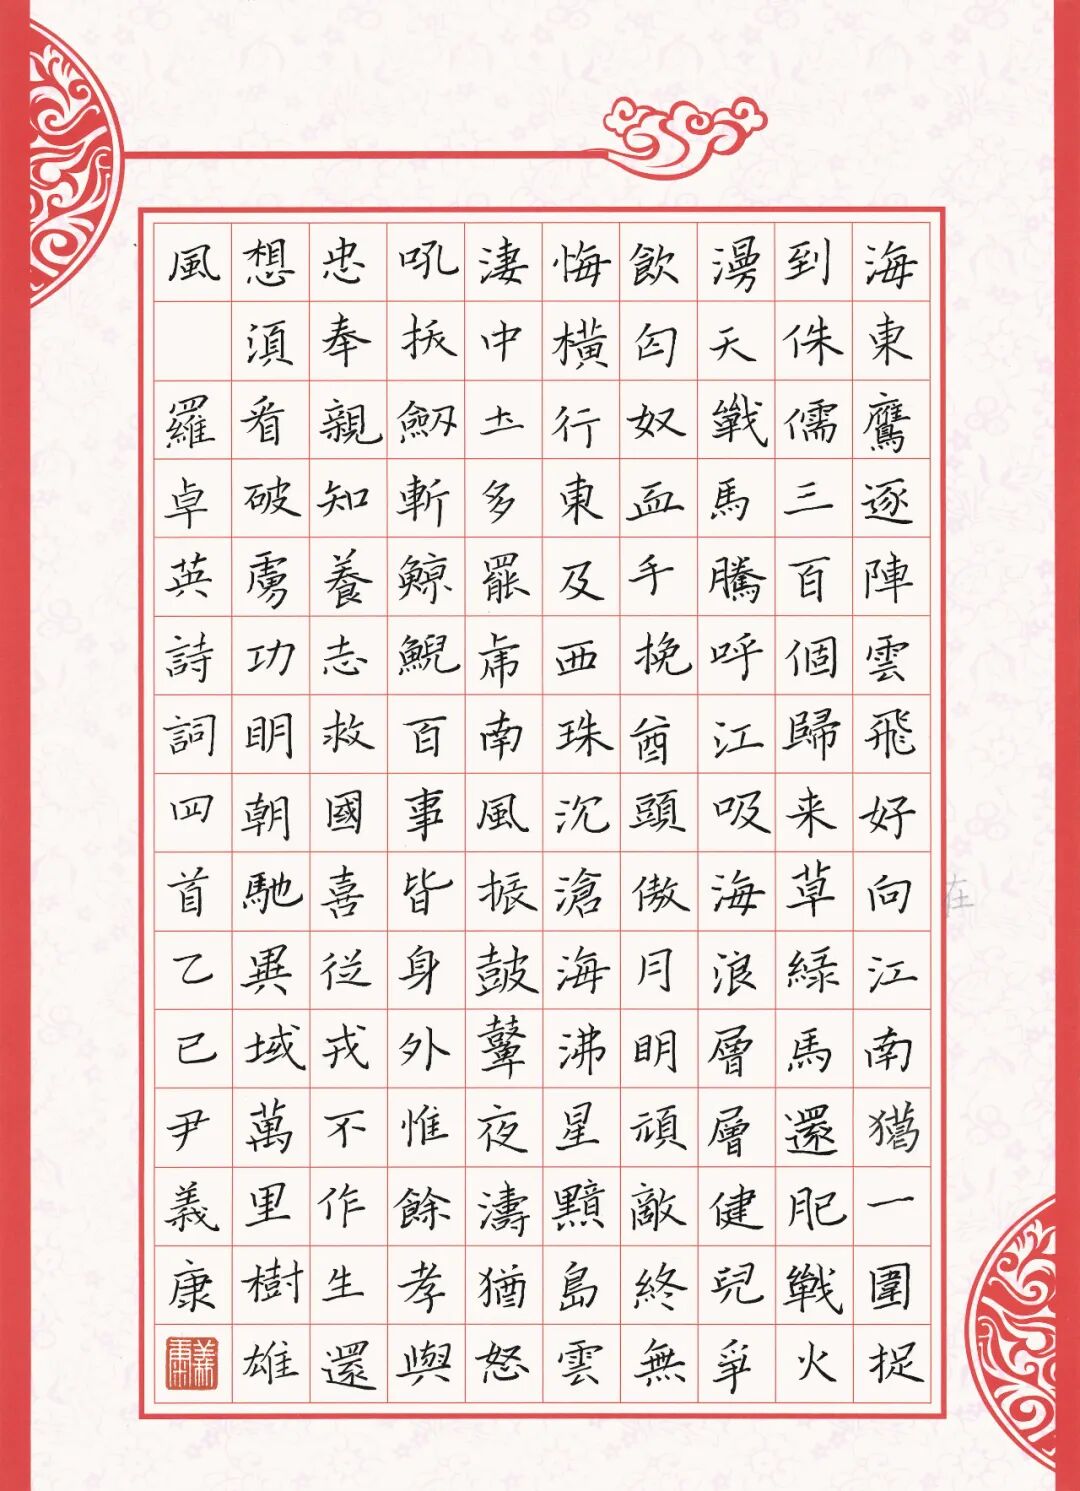 海東鷹逐陣雲飛好向江南獦一圍捉
到侏儒三百個歸来草綠馬還肥戰火
漫天戰馬騰呼江吸海浪層層健兒爭
飲匈奴血手挽酋頭傲月明頑敵終無
悔橫行東及西珠沉滄海沸星黯島雲
淒中土多罷虎南風振鼓鼙夜濤猶怒
吼拔劒斬鯨鯢百事皆身外惟餘孝與
忠奉親知養志救國喜從戎不作生還
想須看破虜功明朝馳異域萬里樹雄
風 羅卓英詩詞四首乙巳尹義康
義康
在